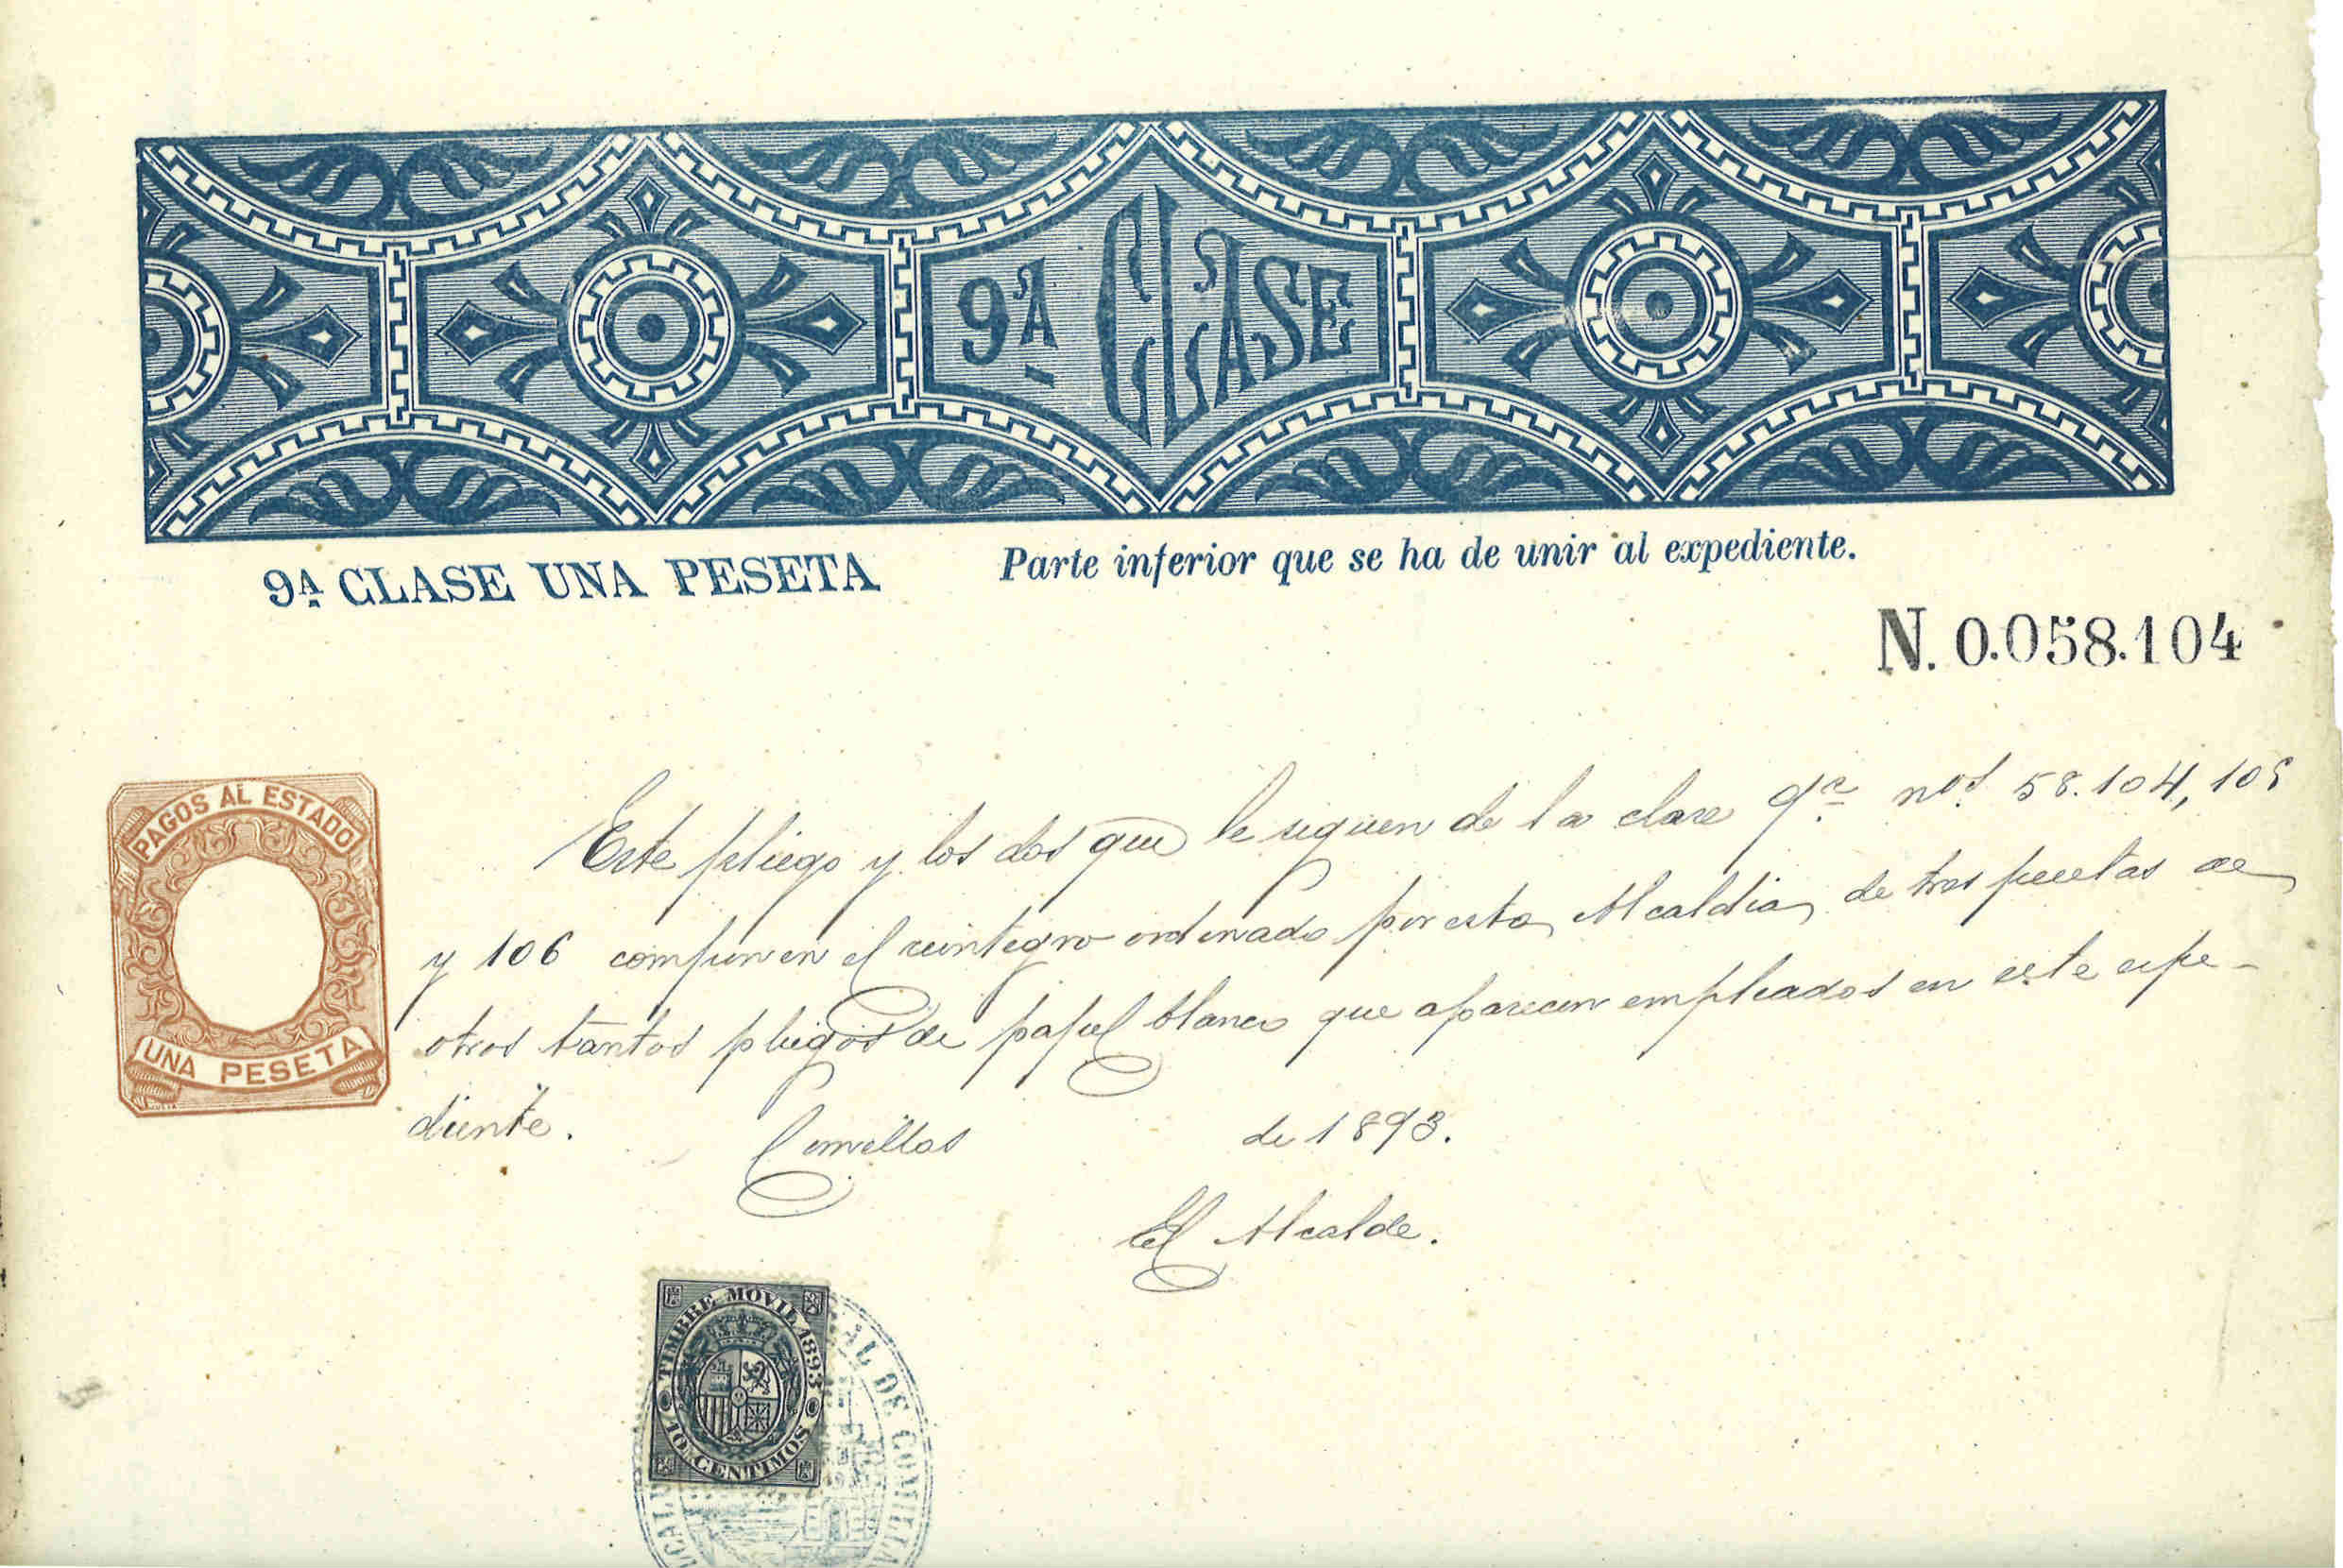 9ª CLASE
9ª CLASE UNA PESETA
Parte inferior que se ha de unir al expediente.
N. 0.058.104
PAGOS AL ESTADO
UNA PESETA
Este pliego y los dos que le siguen de la clase 9ª nos. 58.104, 105
y 106 componen el reintegro ordenado por esta Alcaldia, de tres pesetas de
otros tantos pliegos de papel blanco que aparecen empleados en este expe-
diente. Comillas de 1893.
El Alcalde.
TIMBRE MOVIL 1893
10 CENTIMOS
AL DE COMILLA